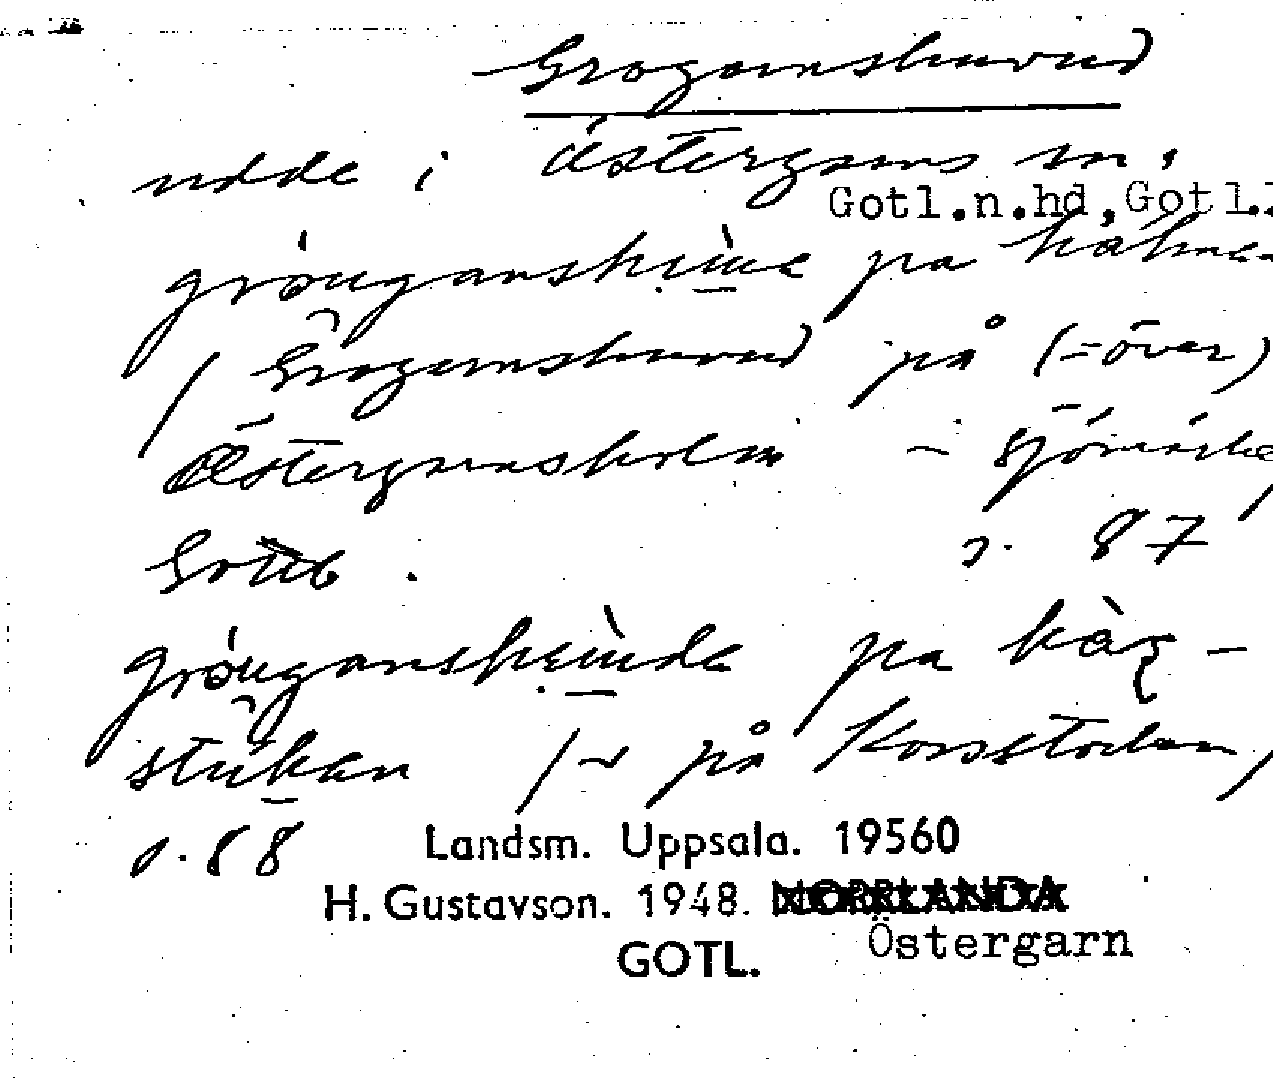 Grogarnshuvud
udde i Östergarns sn.
Gotl.n.hd, Gotl.
gróugarnshùue pa
/ Grogarnshuvud på (=över)
Östergarnsholm – sjömärke,
s. 87
gróugarnshùude pa
stukan /~ på Korsstocken,
s. 88
Landsm. Uppsala. 19560
H. Gustavson. 1948. NORRLANDA
Östergarn
GOTL.